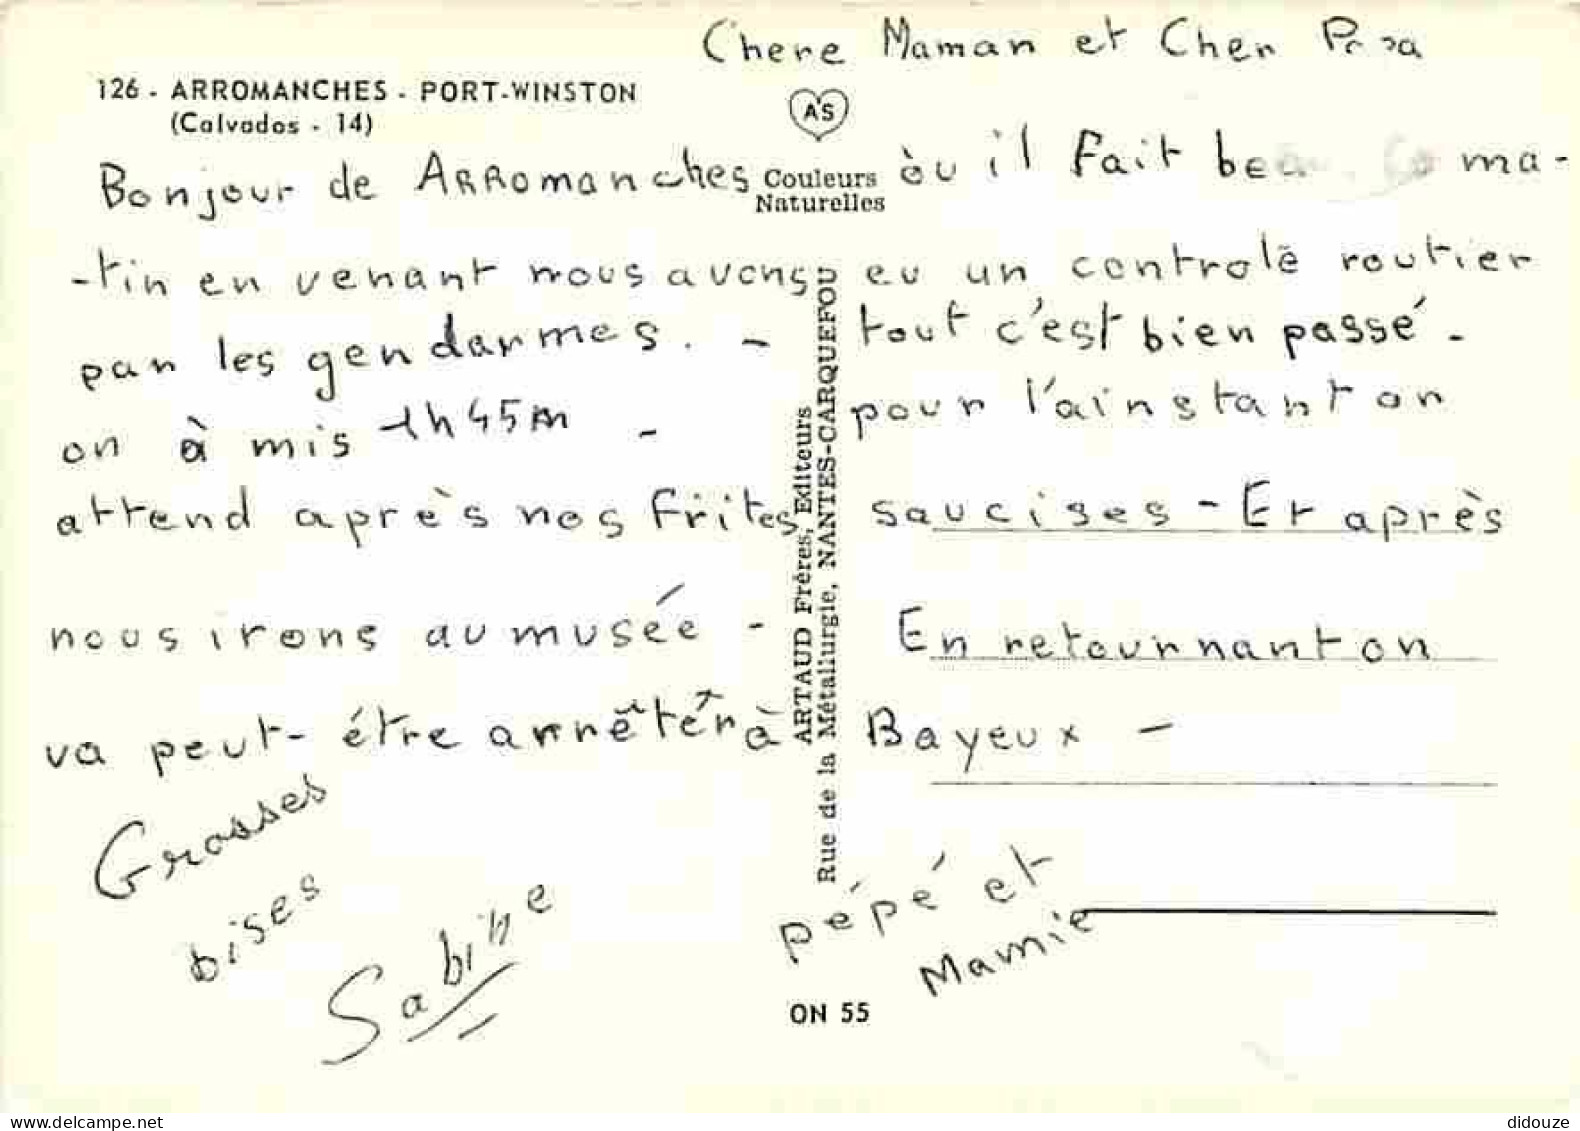 Chere Maman et Cher Papa
126 - ARROMANCHES - PORT-WINSTON
(Calvados - 14)
A'S
Couleurs
Naturelles
Bonjour de ARRomanches où il Fait beau. Ce ma-
-tin en venant nous avons eu un controle routier
par les gendarmes. - tout c'est bien passé -
on à mis 1h45m - pour l'ainstant on
attend après nos Frites saucises - Et après
nous irons au musée - En retournant on
va peut-étre arrêtér à Bayeux -
Grosses
bises
Sabine
pépé et
Mamie
ARTAUD Frères, Editeurs
Rue de la Métallurgie, NANTES-CARQUEFOU
ON 55
didouze